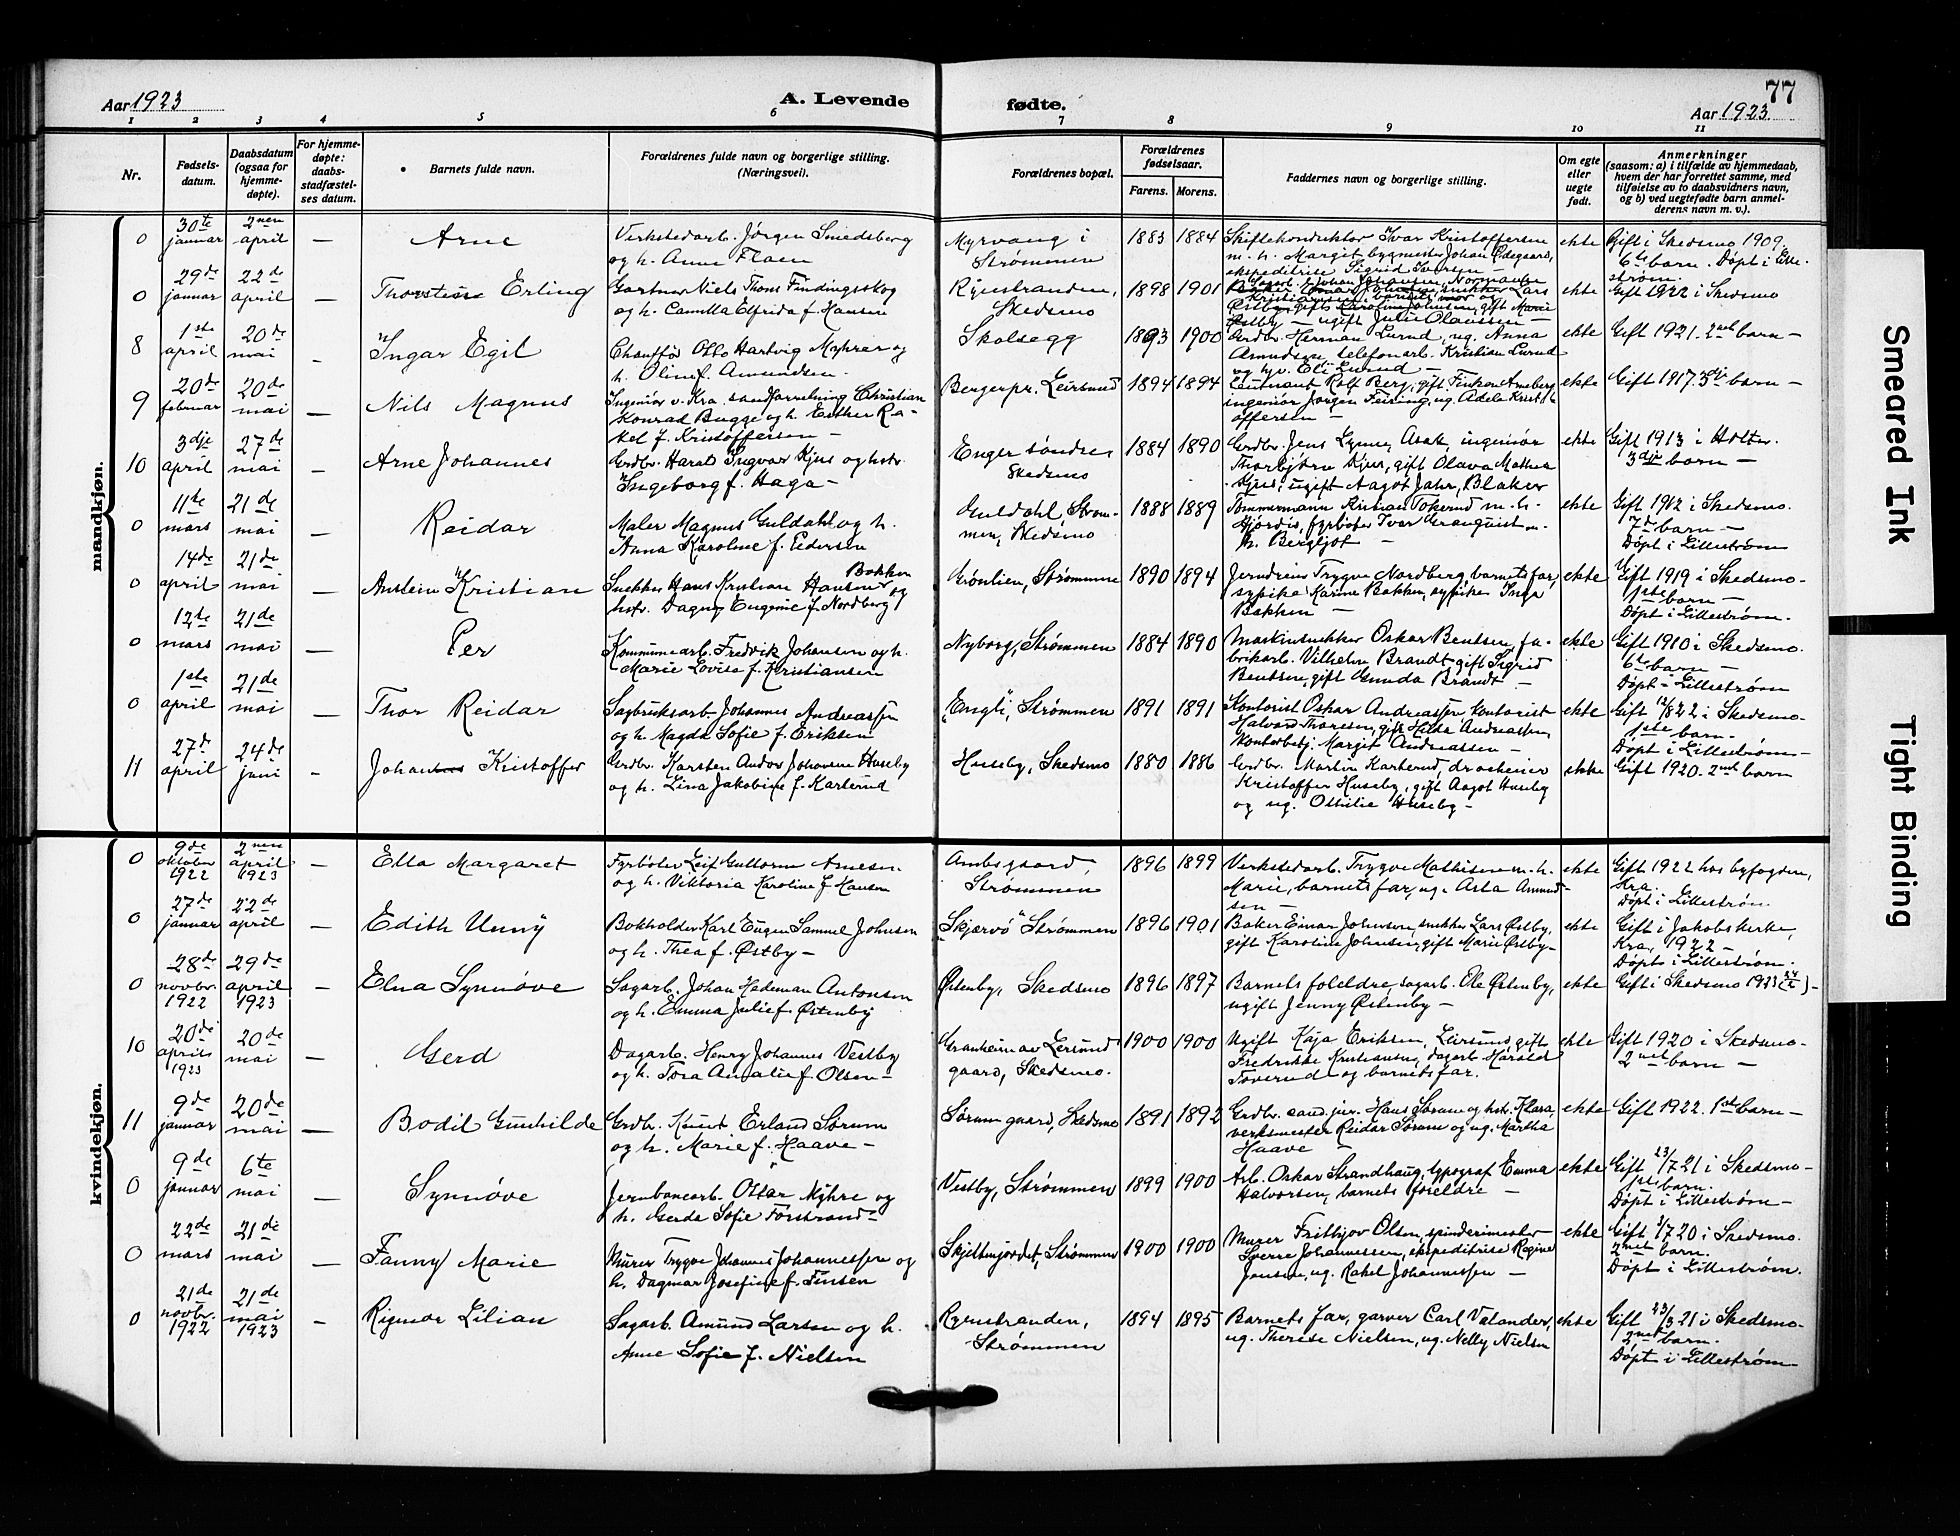 77
Aar 1923
A. Levende
fødte.
Aar 1923.
1 2 3 4 5 6 7 8 9 10 11
Nr.
Fødsels-
datum.
Daabsdatum
(ogsaa for
hjemme-
døpte).
For hjemme-
døpte:
daabs-
stadfæstel-
ses datum.
Barnets fulde navn.
Forældrenes fulde navn og borgerlige stilling.
(Næringsvei).
Forældrenes bopæl.
Forældrenes
fødselsaar.
Farens. Morens.
Faddernes navn og borgerlige stilling.
Om egte
eller
uegte
født.
Anmerkninger
(saasom: a) i tilfælde av hjemmedaab,
hvem der har forrettet samme, med
tilføielse av to daabsvidners navn,
og b) ved uegtefødte barn anmel-
derens navn m. v.).
mandkjøn.
0
30te
januar
2nen
april
—
Arne
Verkstedarb. Jørgen Smedsberg
og h. Anna Flaen
Myrvang i
Strømmen
1883 1884
Skiftekonduktør Ivar Kristoffersen
m. h. Margit bygmester Johan Ødegaard,
ekspeditrise Sigrid Iversen —
ekte
Gift i Skedsmo 1909.
6te barn. Døpt i Lille-
strøm.
0
29de
januar
22de
april
—
Thorstein Erling
Gartner Niels Thoms Findingsskog
og h. Camilla Elfrida f. Hansen
Ryenstranden,
Skedsmo
1898 1901
ugift Julie Olaussen —
ekte
Gift 1922 i Skedsmo
8
1ste
april
20de
mai
—
Ingar Egil
Chauffør Otto Hartvig Myhrer og
h. Oline f. Amundsen.
Skolsegg
1893 1900
Grdbr. Herman Lund, ug. Anna
Amundsen, telefonarb. Kristian Lund
og hv. Eli Lund —
ekte
Gift 1921. 2net barn —
9
20de
februar
20de
mai
—
Nils Magnus
Ingeniør v. Kra. vandforretning Christian
Konrad Bugge og h. Esther Ra-
kel f. Kristoffersen —
Bergerpr. Leirsund
1894 1894
Leutnant Rolf Berg, gift Finken Arneberg
ingeniør Jørgen Feiring, ug. Adele Krist-
offersen —
ekte
Gift 1917. 3dje barn —
10
3dje
april
27de
mai
—
Arne Johannes
Grdbr. Harald Ingvar Kjus og hstr.
Ingeborg f. Haga —
Enger søndre
Skedsmo
1884 1890
Grdbr. Jens Lynne, Asak, ingeniør
Thorbjørn Kjus, gift Olava Mathea
Kjus, ugift Aagot Jahr, Blaker
ekte
Gift 1913 i Holter.
3dje barn —
0
11te
mars
21de
mai
—
Reidar
Maler Magnus Guldahl og h.
Anna Karoline f. Pedersen
Guldahl Strøm-
men, Skedsmo
1888 1889
Tømmermann Kristian Tokerud m. h.
Hjørdis, fyrbøter Ivar Granquist m.
h. Bergljot —
ekte
Gift 1912 i Skedsmo.
7de barn —
Døpt i Lillestrøm
0
14de
april
21de
mai
—
Anstein Kristian
Snekker Hans Kristian Hansen Bakken og
hstr. Dagny Eugenie f. Nordberg
Grønlien, Strømmen
1890 1894
Jerndreier Trygve Nordberg, barnets far,
sypike Karine Bakken, sypike Inga
Bakken —
ekte
Gift 1919 i Skedsmo.
1ste barn —
Døpt i Lillestrøm.
0
12te
mars
21de
mai
—
Per
Kommunearb. Fredrik Johansen og h.
Marie Lovise f. Kristiansen
Nyborg, Strømmen
1884 1890
Maskinsnekker Oskar Bentsen, fa-
brikarb. Vilhelm Brandt gift Sigrid
Bentsen, gift Gunda Brandt —
ekte
Gift 1910 i Skedsmo.
6te barn —
Døpt i Lillestrøm
0
1ste
april
21de
mai
—
Thor Reidar
Sagbruksarb. Johannes Andreassen
og h. Magda Sofie f. Eriksen
"Engli", Strømmen
1891 1891
Kontorist Oskar Andreassen kontorist
Halvard Thoresen, gift Hilda Andreassen,
kontorbetj. Margit Andreassen —
ekte
Gift 12/8 22 i Skedsmo.
1ste barn.
Døpt i Lillestrøm —
11
27de
april
24de
juni
-
Johannes Kristoffer
Grdbr. Karsten Andor Johansen Huseby
og h. Lina Jakobine f. Karterud
Huseby, Skedsmo
1880 1886
Grdbr. Martin Karterud, droskeeier
Kristoffer Huseby, gift Aagot Huseby
og ug. Ottilie Huseby —
ekte
Gift 1920. 2net barn
kvindekjøn.
0
9de
oktober
1922
2nen
april
1923
—
Ella Margaret
Fyrbøter Leif Guttorm Arnesen
og h. Viktoria Karoline f. Hansen
Ambsgaard,
Strømmen
1896 1899
Verkstedarb. Trygve Mathisen m. h.
Marie, barnets far, ug. Asta Amund-
sen —
ekte
Gift 1922 hos byfogden,
Kra.
Døpt i Lillestrøm
0
27de
januar
22de
april
—
Edith Unny
Bokholder Karl Eugen Samuel Johnsen
og h. Thea f. Østby —
"Skjærvø" Strømmen
1896 1901
Baker Einar Johnsen, snekker Lars Østby,
gift Karoline Johnsen, gift Marie Østby —
ekte
Gift i Jakobskirke,
Kra, 1922 —
Døpt i Lillestrøm.
0
28de
novbr.
1922
29de
april
1923
—
Elna Synnøve
Sagarb. Johan Hedeman Antonsen
og h. Emma Julie f. Østenby
Østenby, Skedsmo
1896 1897
Barnets foreldre, sagarb. Ole Østenby,
ugift Jenny Østenby —
ekte
Gift i Skedsmo 1923
10
20de
april
1923
20de
mai
—
Gerd
Dagarb. Henry Johannes Vestby
og h. Tora Amalie f. Olsen —
Granheim av Lersund
gaard, Skedsmo.
1900 1900
Ugift Kaja Eriksen, Leirsund, gift
Fredrikke Kristiansen, dagarb. Harald
Toverud og barnets far.
ekte
Gift 1920 i Skedsmo.
2net barn —
11
9de
januar
20de
mai
—
Bodil Gunhilde
Grdbr. Knut Erland Sørum
og h. Marie f. Haave —
Sørum gaard, Skedsmo
1891 1892
Grdbr. cand. jur. Hans Sørum og hstr. Klara,
verksmester Reidar Sørum og ug. Martha
Haave —
ekte
Gift 1922. 1ste barn —
0
9de
januar
6te
mai
—
Synnøve
Jernbanearb. Ottar Myhre og
h. Gerda Sofie Forstrand —
Vestby, Strømmen
1899 1900
Arb. Oskar Strandhaug, typograf Emma
Halvorsen, barnets foreldre —
ekte
Gift 23/7 21 i Skedsmo —
1ste barn.
Døpt i Lillestrøm —
0
22de
mars
21de
mai
—
Fanny Marie
Murer Trygve Johannes Johannessen og
h. Dagmar Josefine f. Jensen
Skjettenjordet, Strømmen
1900 1900
Murer Frithjov Olsen, spinderimester
Sverre Johannessen, ekspeditrise Ragine
Jensen, ug. Rakel Johannessen —
ekte
Gift 3/7 20 i Skedsmo.
2net barn.
Døpt i Lillestrøm.
0
21de
novbr.
1922
21de
mai
1923
—
Rigmor Lilian
Sagarb. Amund Larsen og h.
Anne Sofie f. Nielsen
Ryenstranden,
Strømmen
1894 1895
Barnets far, garver Carl Valander,
ug. Therese Nielsen, ug. Nelly Nielsen
ekte
Gift 23/3 21 i Skedsmo.
2net barn.
Døpt i Lillestrøm
Smeared Ink
Tight Binding